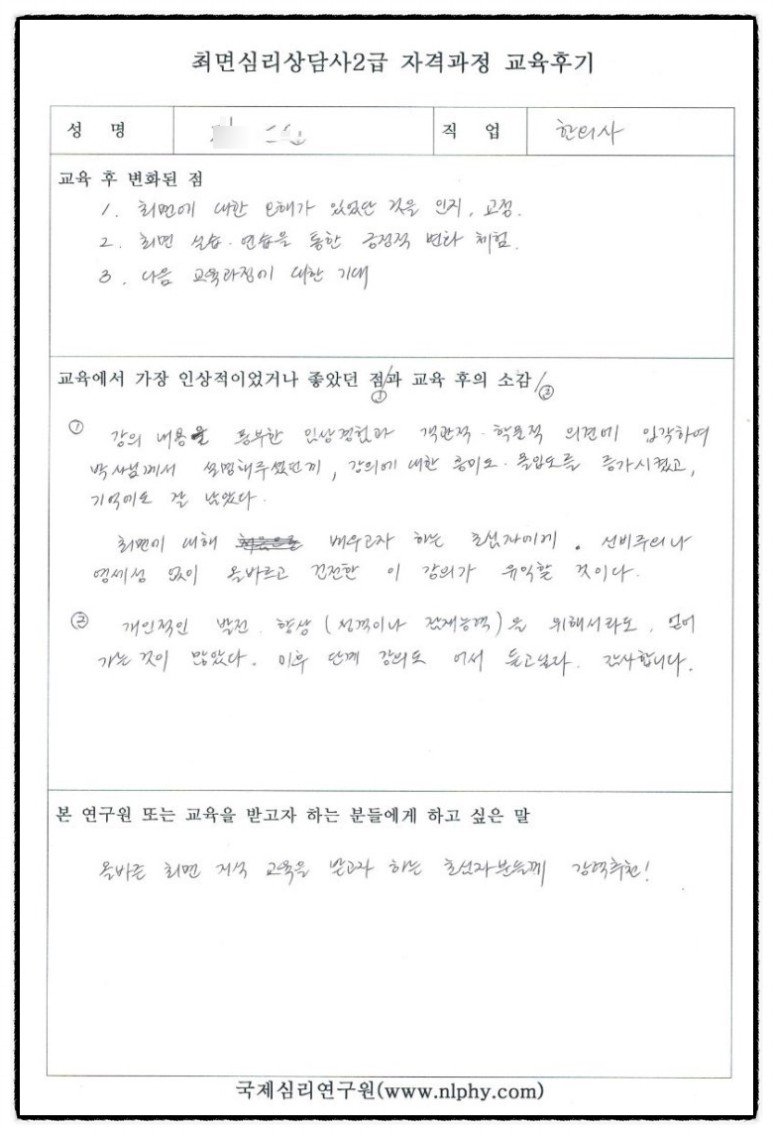 최면심리상담사2급 자격과정 교육후기
성 명
직 업 한의사
교육 후 변화된 점
1. 최면에 대한 오해가 있었단 것을 인지, 교정.
2. 최면 실습·연습을 통한 긍정적 변화 체험.
3. 다음 교육과정에 대한 기대
교육에서 가장 인상적이었거나 좋았던 점/과 교육 후의 소감/
① ②
① 강의 내용을 풍부한 임상경험과 객관적·학문적 의견에 입각하여
박사님께서 설명해주셨던게, 강의에 대한 흥미도·몰입도를 증가시켰고,
기억에도 잘 남았다.
최면에 대해 배우고자 하는 초심자에게. 신비주의나
영세성 없이 올바르고 건전한 이 강의가 유익할 것이다.
② 개인적인 발전, 향상 (성격이나 잠재능력)을 위해서라도, 얻어
가는 것이 많았다. 이후 단계 강의도 어서 듣고싶다. 감사합니다.
본 연구원 또는 교육을 받고자 하는 분들에게 하고 싶은 말
올바른 최면 지식 교육을 받고자 하는 초심자분들께 강력추천!
국제심리연구원(www.nlphy.com)